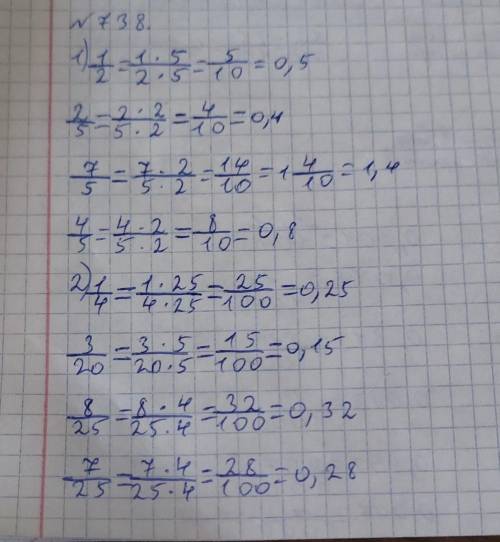 №738.
1) 1/2 = 1·5/2·5 = 5/10 = 0,5
2/5 = 2·2/5·2 = 4/10 = 0,4
7/5 = 7·2/5·2 = 14/10 = 1 4/10 = 1,4
4/5 = 4·2/5·2 = 8/10 = 0,8
2) 1/4 = 1·25/4·25 = 25/100 = 0,25
3/20 = 3·5/20·5 = 15/100 = 0,15
8/25 = 8·4/25·4 = 32/100 = 0,32
7/25 = 7·4/25·4 = 28/100 = 0,28